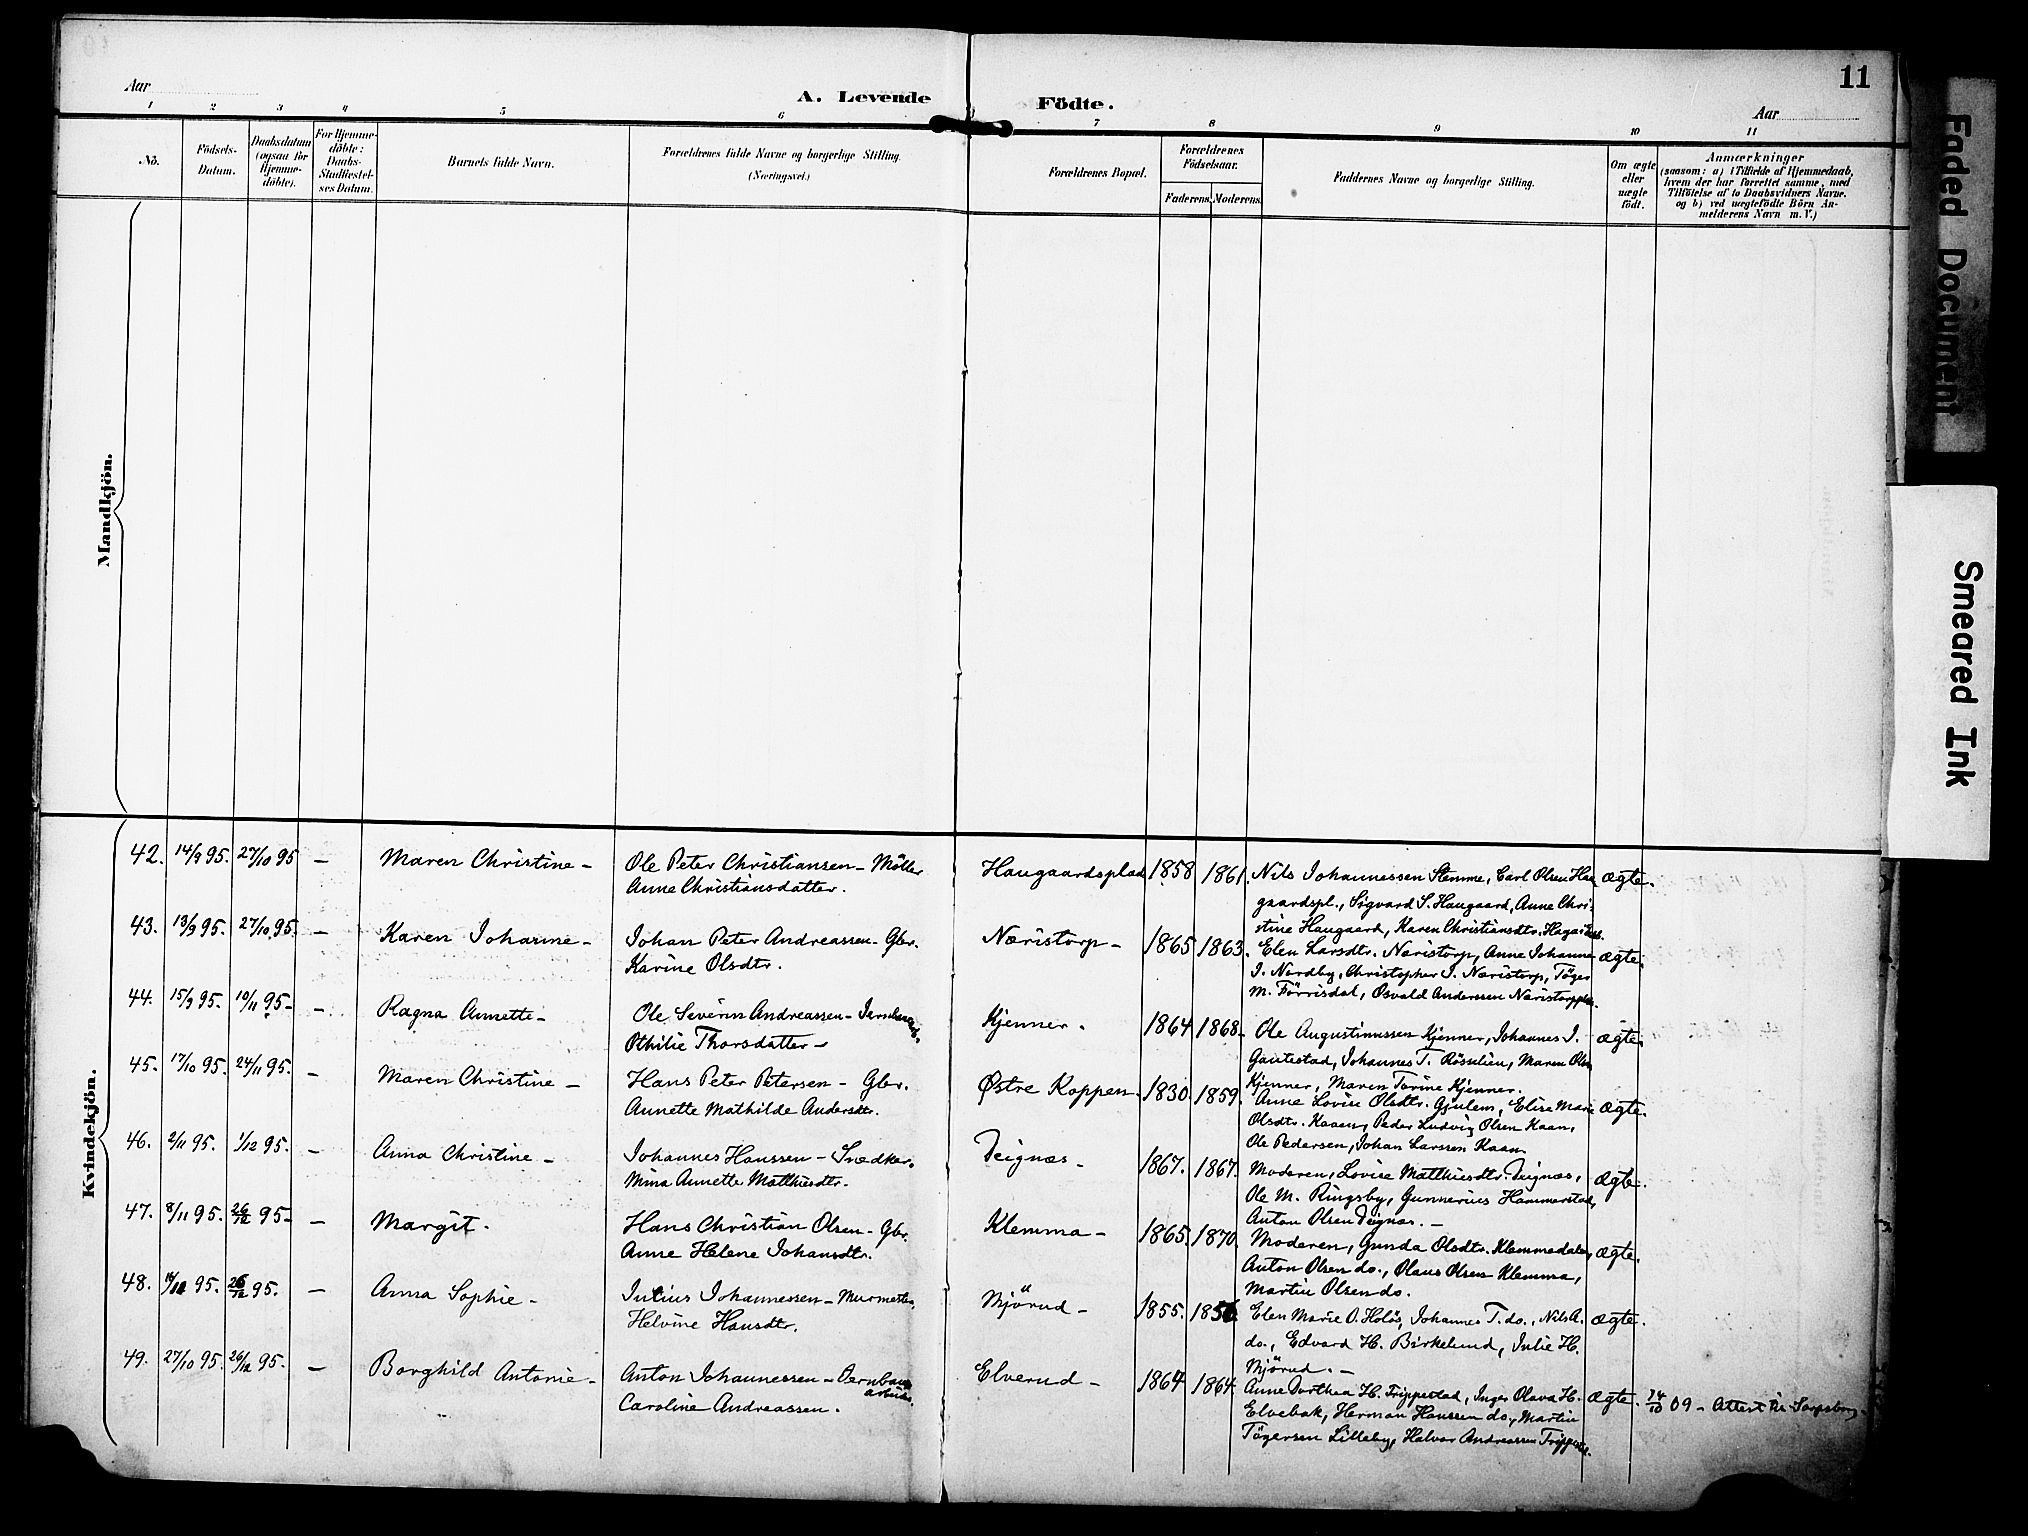 11
Aar
A. Levende Födte.
Aar
1 2 3 4 5 6 7 8 9 10 11
No.
Födsels-Datum.
Daabsdatum (ogsaa för Hjemme-döbte).
For Hjemme-döbte: Daabs-Stadfæstel-ses Datum.
Barnets fulde Navn.
Forældrenes fulde Navne og borgerlige Stilling. (Næringsvei.)
Forældrenes Bopæl.
Forældrenes Födselsaar.
Faderens. Moderens.
Faddernes Navne og borgerlige Stilling.
Om ægte eller uægte födt.
Anmærkninger
(saasom: a) i Tilfælde af Hjemmedaab,
hvem der har forrettet samme, med
Tilföielse af to Daabsvidners Navne.
og b) ved uægtefödte Börn An-
melderens Navn m. V.)
Mandkjön.
Kvindekjön.
42. 14/9 95. 27/10 95 — Maren Christine — Ole Peter Christiansen — Möller Haugaardsplads 1858 1861. Nils Johannessen Stemme, Carl Olsen Hau ægte.
Anne Christiansdatter. gaardspl., Sigvard S. Haugaard, Anne Chri-
stine Haugaard, Karen Christiansdtr.
43. 13/9 95. 27/10 95. — Karen Johanne — Johan Peter Andreassen — Gbr. Næristorp — 1865 1863. Elen Larsdtr. Næristorp, Anne Johanne ægte.
Karine Olsdtr. J. Nordby, Christopher J. Næristorp, Töger
M. Förrisdal, Osvald Anderssen
44. 15/9 95. 10/11 95 — — Ragna Annette — Ole Severin Andreassen — Kjenner. 1864 1868 — Ole Augustinussen Kjenner, Johannes J. ægte.
Othilie Thorsdatter — Gautestad, Johannes T. Rössulien, Maren Olsen
Kjenner, Maren Torine Kjenner.
45. 17/10 95. 24/11 95. — Maren Christine — Hans Peter Petersen — Gbr. Østre Koppen. 1830 1859. Anne Lovise Olsdtr. Gjulem, Elise Marie ægte.
Annette Mathilde Andersdtr. Olsdtr. Kaan, Peder Ludvig Olsen Kaan,
Ole Pedersen, Johan Larssen Kaan
46. 2/11 95. 1/12 95. — Anna Christine — Johannes Hanssen — Snedker. Teignæs — 1867. 1867. Moderen, Lovise Matthiesdtr. Teignæs, ægte.
Mina Annette Matthiesdtr. Ole M. Ringsby, Gunnerius Hammerstad,
Anton Olsen Teignæs. —
47. 8/11 95. 26/12 95 — — Margit. Hans Christian Olsen — Gbr. Klemma — 1865. 1870. Moderen, Gunda Olsdtr. Klemmedalen, ægte.
Anne Helene Johansdtr. Anton Olsen do., Olaus Olsen Klemma,
Martin Olsen do.
48. 95. 26/12 95. — Anna Sophie — Julius Johannessen — Murmester. Mjörud — 1855. 1856 Elen Marie O. Holös, Johannes T. do., Nils A. ægte.
Helvine Hansdtr. do., Edvard H. Birkelund, Julie H.
Mjörud. —
49. 27/10 95. 26/12 95. — Borghild Antonie — Anton Johannessen — Elverud — 1864 1864. Anne Dorthea H. Trippestad, Inger Olava H. ægte. 14/10 09 — Attest til Sarpsborg —
Caroline Andreassen. Elvebak, Herman Hanssen do., Martin
Tögersen Lilleby, Halvor Andreassen
Faded Document
Smeared Ink